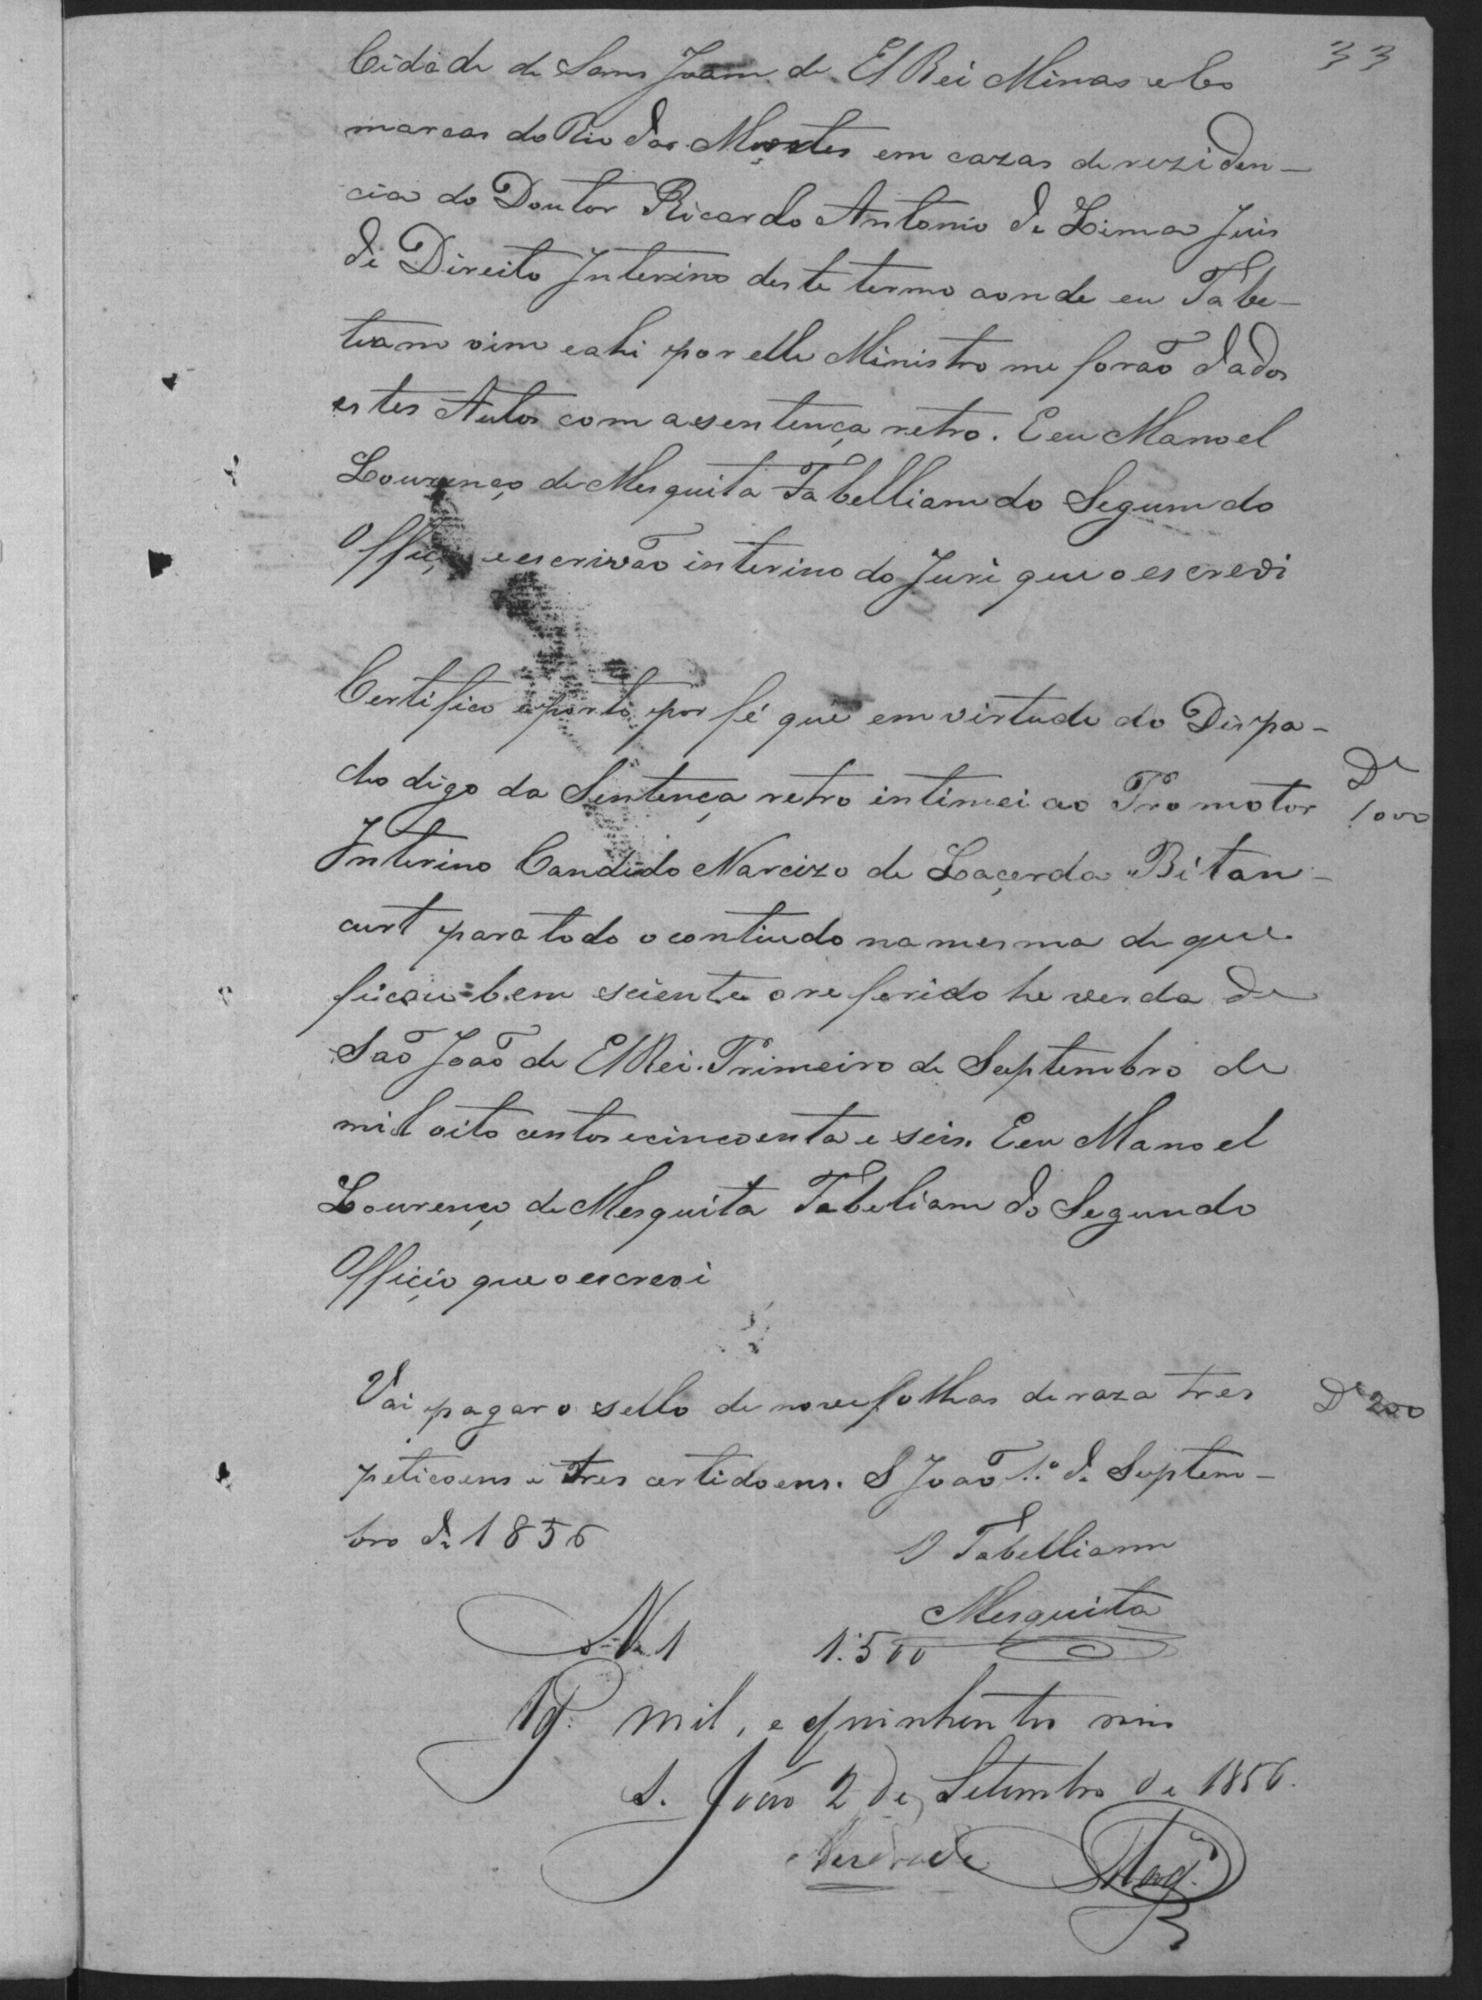 33
Cidade de Sam Joam de El Rei Minas e Co
marcas do Rio das Mortes em cazas de reziden-
cia do Doutor Ricardo Antonio de Lima Juis
de Direito Interino deste termo aonde eu Tabe-
liam vim e ahi por elle Ministro me forão dados
estes Autos com a sentença retro. E eu Manoel
Lourenço de Mesquita Tabelliam do Segundo
Officio e escrivão interino do Juri que o escrevi
Certifico e porto por fé que em virtude do Dispa-
cho digo da Sentença retro intimei ao Promotor
De
1000
Interino Candido Narcizo de Laçerda Bitan-
curt para todo o contiudo na mesma de que
ficou bem sciente o referido he verda de
São João de El Rei. Primeiro de Septembro de
mil oito centos e cincoenta e seis. E eu Manoel
Lourenço de Mesquita Tabeliam do Segundo
Offiçio que o escrevi
Vai pagar o sello de nove folhas de raza tres
De 200
peticoens e tres certidoens. S João 1.º de Septem-
bro de 1856
O Tabelliam
Mesquita
N 1
1:500
Pg. mil, e quinhentos reis
S. João 2 de Setembro de 1856.
Andrade